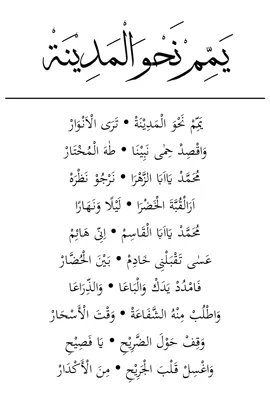 يَمِّمْ نَحْوَ الْمَدِينَةْ
يَمِّمْ نَحْوَ الْمَدِينَةْ • تَرَى الْأَنْوَارْ
وَاقْصِدْ حِمَى نَبِيْنَا • طٰهَ الْمُخْتَارْ
مُحَمَّدْ يَاأَبَا الزَّهْرَا • نَرْجُوْ نَظْرَهْ
أَرَالْقُبَّةَ الْخَضْرَا • لَيْلًا وَنَهَارًا
مُحَمَّدْ يَاأَبَا الْقَاسِمْ • إِنِّى هَائِمْ
عَسٰى تَقْبَلْنِى خَادِمْ • بَيْنَ الْحُضَّارْ
فَامْدُدْ يَدَكْ وَالْبَاعَا • وَالذِّرَاعَا
وَاطْلُبْ مِنْهُ الشَّفَاعَةْ • وَقْتَ الْأَسْحَارْ
وَقِفْ حَوْلَ الضَّرِيْحْ • يَا فَصِيْحْ
وَاغْسِلْ قَلْبَ الْجَرِيْحْ • مِنَ الْأَكْدَارْ